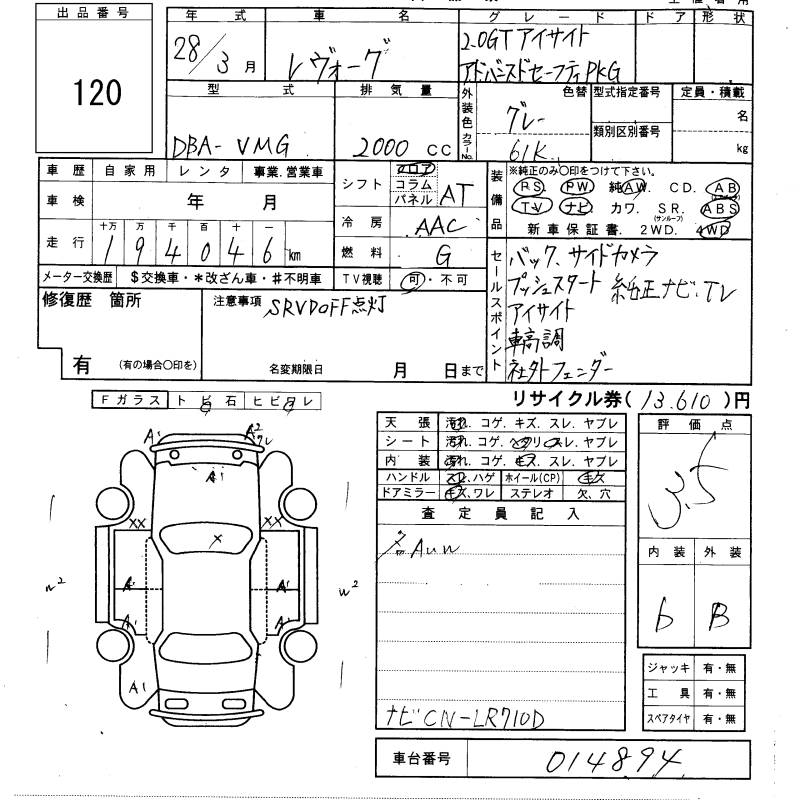 出品番号
120
年式 車名 グレード ドア 形状
28/3月 レヴォーグ 2.0GT アイサイト
アドバンスドセーフティPKG
型式 排気量 外装色 カラーNo. 色替 型式指定番号 定員・積載
DBA- VMG 2000 CC グレー 61K 類別区別番号 名 kg
車歴 自家用 レンタ 事業.営業車
車検 年 月
走行 十万 万 千 百 十 一
194046 km
メーター交換歴 $交換車・*改ざん車・#不明車
シフト フロア コラム パネル AT
冷房 AAC
燃料 G
TV視聴 可・不可
装備品 ※純正のみ〇印をつけて下さい。
PS PW 純AW. CD. AB
TV ナビ カワ. SR.(サンルーフ) ABS
新車保証書. 2WD. 4WD
セールスポイント
バック、サイドカメラ
プッシュスタート 純正ナビ・TV
アイサイト
車高調
社外フェンダー
修復歴 箇所
有 (有の場合〇印を)
注意事項 SRVDOFF点灯
名変期限日 月 日まで
リサイクル券( 13.610 )円
Fガラス トビ石 ヒビワレ
天張 汚れ.コゲ.キズ.スレ.ヤブレ
シート 汚れ.コゲ. スレ.ヤブレ
内装 汚れ.コゲ.キズ.スレ.ヤブレ
ハンドル スレ.ハゲ ホイール(CP) 欠
ドアミラー キズ.ワレ ステレオ 欠.穴
査定員記入
ナビCN-LR710D
評価点
3.5
内装 外装
b B
A' A² ワレ
A'
XX XX
X
A' A'
W² W²
A' A'
A'
ジャッキ 有・無
工具 有・無
スペアタイヤ 有・無
車台番号 014894